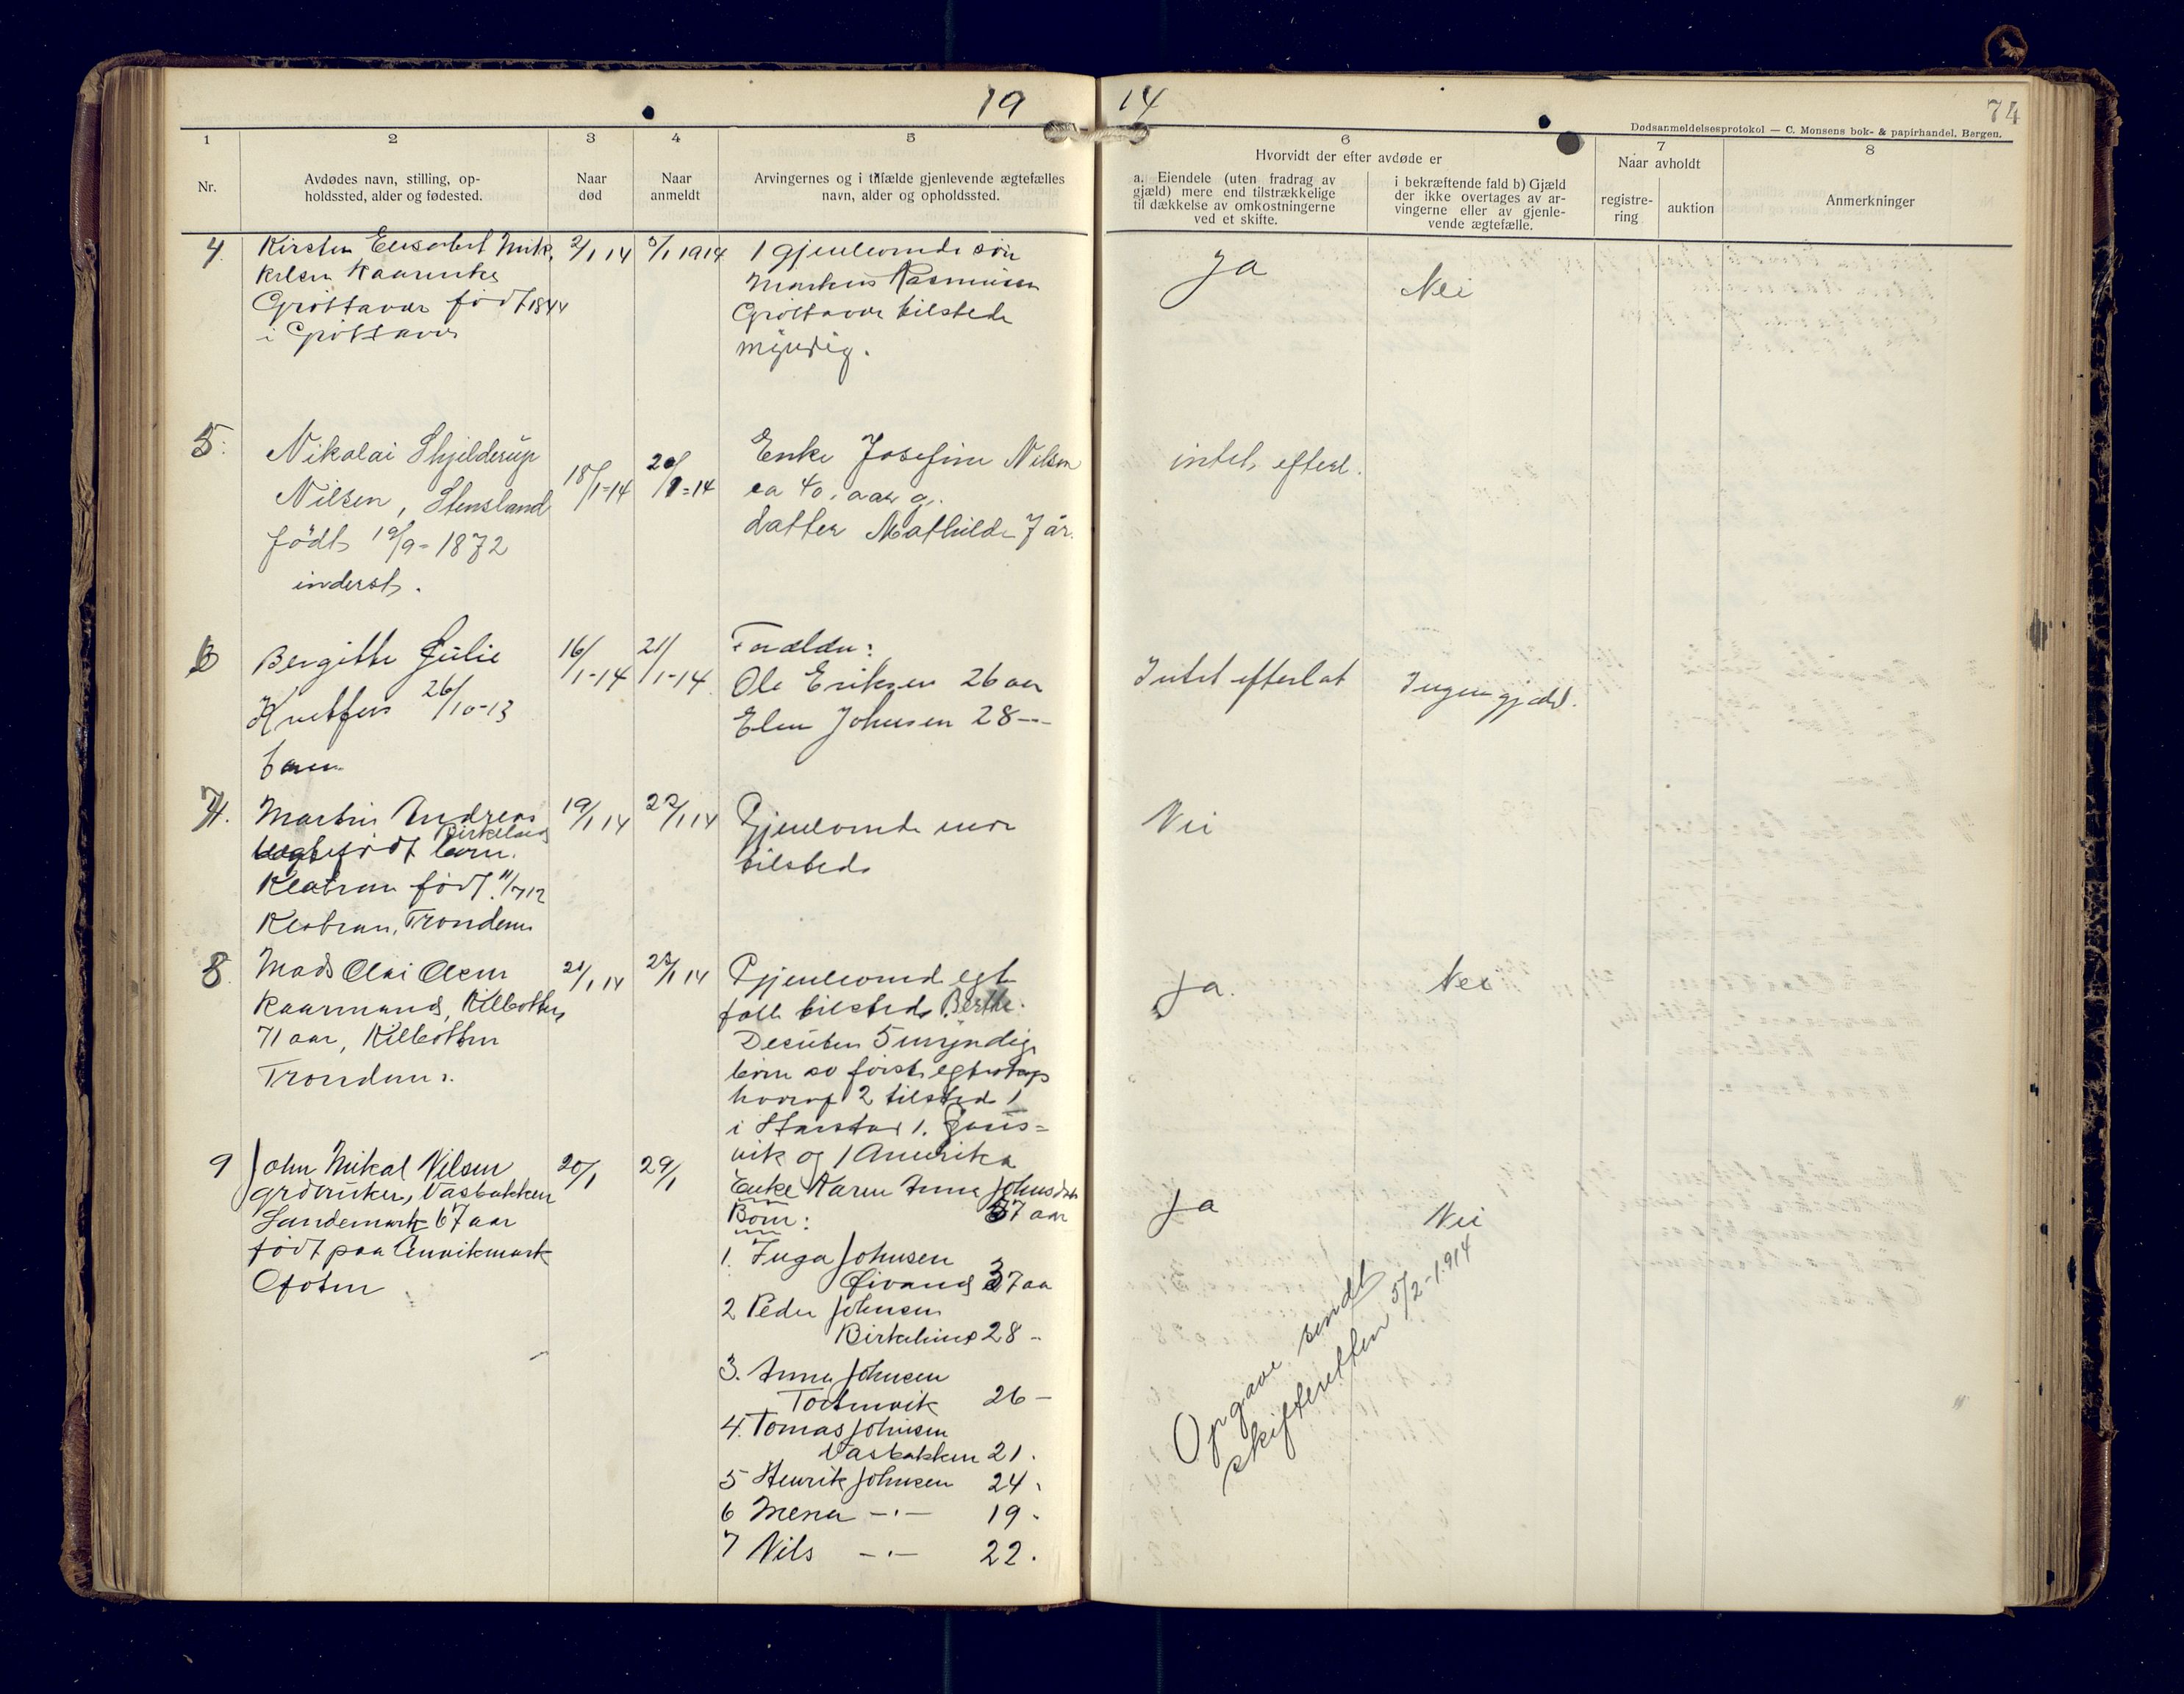 19 14
74
Dødsanmeldelsesprotokol — C. Monsens bok- & papirhandel, Bergen.
1 2 3 4 5 6 7 8
Nr.
Avdødes navn, stilling, op-
holdssted, alder og fødested.
Naar
død
Naar
anmeldt
Arvingernes og i tilfælde gjenlevende ægtefælles
navn, alder og opholdssted.
Hvorvidt der efter avdøde er
a. Eiendele (uten fradrag av
gjæld) mere end tilstrækkelige
til dækkelse av omkostningerne
ved et skifte.
i bekræftende fald b) Gjæld
der ikke overtages av ar-
vingerne eller av gjenle-
vende ægtefælle.
Naar avholdt
registre-
ring
auktion
Anmerkninger
4.
Kirsten Elisabet Mik
kelsen Kaarenke
Grøttavær født 1844
i Grøttavær
2/1 14
5/1 1914
1 gjenlevende søn
Markus Rasmusen
Grøttavær tilstede
myndig.
Ja
Nei
5.
Nikolai Skjelderup
Nilsen, Stensland
født 19/9-1872
inderst.
18/1-14
20/1-14
Enke Josefine Nilsen
ca 40 aar g.
datter Mathilde 7 år.
intet efterl.
6
Bergitte Julie
Kvitfors 26/10-13
barn
16/1-14
21/1-14
Forældre:
Ole Eriksen 26 aar
Elen Johnsen 28 --
Intet efterlat
Ingen gjæld.
7.
Martin Andreas
Birkeland
født barn.
født 11/7 12
Trondenes
19/1 14
22/1 14
Gjenlevende mor
tilstede
Nei
8
Mads Olai Olsen
Kaarmand, Kilbotten
71 aar, Kilbotten
Trondenes.
21/1 14
23/1 14
Gjenlevende egte
fælle tilstede Berthe.
Desuten 5 myndige
børn av første egteskap
hvorav 2 tilstede 1
i Harstad 1. Gaus=
vik og 1 Amerika
Ja.
Nei
9
John Mikal Nilsen
grdbruker, Vasbakken
Sandemark 67 aar
født paa Annikmark
Ofoten
20/1
29/1
Enke Karen Anna Johnsdatr
Børn: 37 aar
1. Inga Johnsen
Øivand 37 aa
2 Peder Johnsen
Birkeland 28 -
3. Anna Johnsen
Tortenvik 26 -
4. Tomas Johnsen
Vasbakken 21.
5 Henrik Johnsen 24.
6 Mena -"- 19.
7 Nils -"- 22.
Ja
Nei
Opgave sendt
skifteretten 5/2-1914